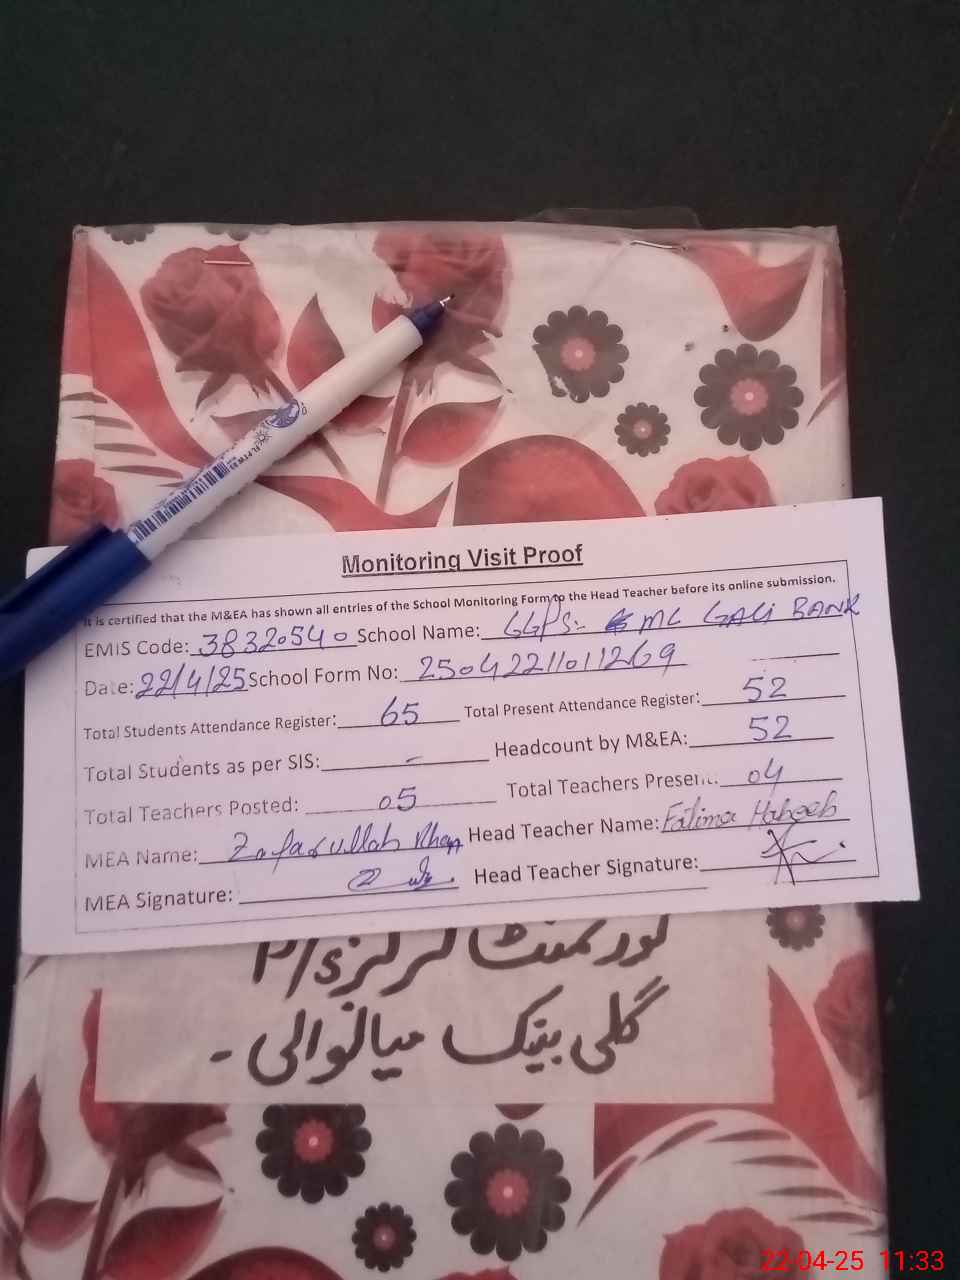 Monitoring Visit Proof
It is certified that the M&EA has shown all entries of the School Monitoring Form to the Head Teacher before its online submission.
EMIS Code: 38320540 School Name: GGPS:- MC GALI BANK
Date: 22/4/25 School Form No: 25042211011269
Total Students Attendance Register: 65 Total Present Attendance Register: 52
Total Students as per SIS: - Headcount by M&EA: 52
Total Teachers Posted: 05 Total Teachers Present: 04
MEA Name: Zafarullah Khan Head Teacher Name: Fatima Habeeb
MEA Signature: Head Teacher Signature:
گورنمنٹ گرلز P/S
گلی بینک میانوالی -
22-04-25 11:33